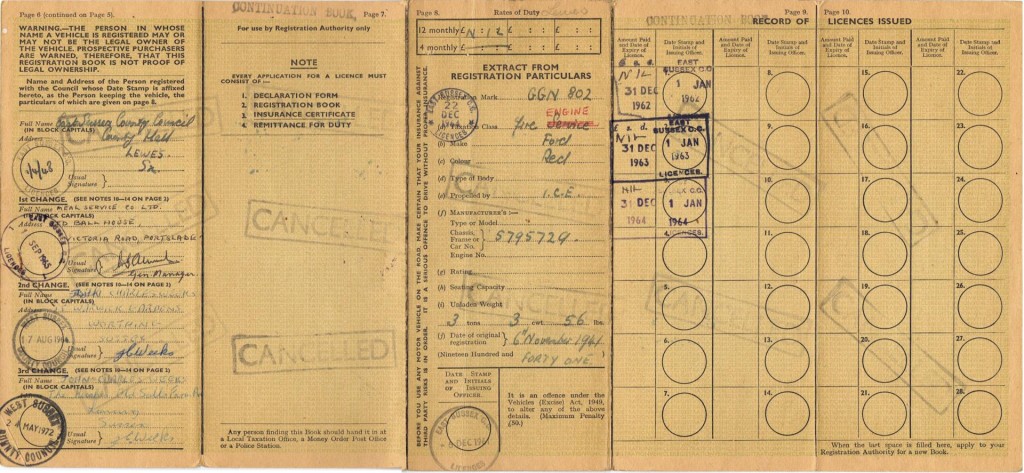 Page 6 (continued on Page 5).
WARNING.—THE PERSON IN WHOSE
NAME A VEHICLE IS REGISTERED MAY OR
MAY NOT BE THE LEGAL OWNER OF
THE VEHICLE. PROSPECTIVE PURCHASERS
ARE WARNED, THEREFORE, THAT THIS
REGISTRATION BOOK IS NOT PROOF OF
LEGAL OWNERSHIP.
Name and Address of the Person registered
with the Council whose Date Stamp is affixed
hereto, as the Person keeping the vehicle,
the particulars of which are given on page 8.
Full Name East Sussex County Council
(IN BLOCK CAPITALS)
Address County Hall
LEWES.
Sx.
Usual
Signature
1ST CHANGE. (SEE NOTES 10—14 ON PAGE 2)
Full Name MEAL SERVICE CO LTD.
(IN BLOCK CAPITALS)
Address RED BALL HOUSE,
VICTORIA ROAD, PORTSLADE
SEP 1965
Usual
Signature
Gen Manager
2ND CHANGE. (SEE NOTES 10—14 ON PAGE 2)
Full Name
(IN BLOCK CAPITALS)
Address WARWICK GARDENS
WORTHING
SUSSEX
WEST SUSSEX
17 AUG 196
COUNTY COUNCIL
Usual
Signature
3RD CHANGE. (SEE NOTES 10—14 ON PAGE 2)
Full Name JOHN CHARLES WEEKS
(IN BLOCK CAPITALS)
Address
Sussex
WEST SUSSEX
MAY 1972
COUNTY COUNCIL
Usual
Signature
CONTINUATION BOOK,
Page 7.
For use by Registration Authority only
NOTE
EVERY APPLICATION FOR A LICENCE MUST
CONSIST OF :—
1. DECLARATION FORM
2. REGISTRATION BOOK
3. INSURANCE CERTIFICATE
4. REMITTANCE FOR DUTY
CANCELLED
CANCELLED
Any person finding this Book should hand it in at
a Local Taxation Office, a Money Order Post Office
or a Police Station.
BEFORE YOU USE ANY MOTOR VEHICLE ON THE ROAD, MAKE CERTAIN THAT YOUR INSURANCE AGAINST
THIRD PARTY RISKS IS IN ORDER. IT IS A SERIOUS OFFENCE TO DRIVE WITHOUT PROPER INSURANCE.
Page 8.
Rates of Duty
Lewes
12 monthly £ NIL £ : : £ : :
4 monthly £ : : £ : : £ : :
EXTRACT FROM
REGISTRATION PARTICULARS
Registration Mark GGN 802
EAST SUSSEX C.C.
22
DEC
1961
LICENCES
ENGINE
(a) Taxation Class Fire Service
(b) Make Ford
(c) Colour Red
(d) Type of Body
(e) Propelled by I.C.E.
(f) MANUFACTURER'S :—
Type or Model
Chassis,
Frame or
Car No. 5795729.
Engine No.
(g) Rating
(h) Seating Capacity
(i) Unladen Weight
3 tons 3 cwt. 56 lbs.
(j) Date of original
registration 6th November 1941
(Nineteen Hundred and FORTY ONE
DATE STAMP
AND INITIALS
OF ISSUING
OFFICER.
EAST SUSSEX C.C.
DEC 196
LICENCES
It is an offence under the
Vehicles (Excise) Act, 1949,
to alter any of the above
details. (Maximum Penalty
£50.)
CONTINUATION BOOK
Page 9.
RECORD OF
Page 10.
LICENCES ISSUED
Amount Paid
and Date of
Expiry of
Licence.
Date Stamp and
Initials of
Issuing Officer.
Amount Paid
and Date of
Expiry of
Licence.
Date Stamp and
Initials of
Issuing Officer.
Amount Paid
and Date of
Expiry of
Licence.
Date Stamp and
Initials of
Issuing Officer.
Amount Paid
and Date of
Expiry of
Licence.
Date Stamp and
Initials of
Issuing Officer.
£ s. d.
NIL
31 DEC
1962
EAST
SUSSEX C.C.
1 JAN
1962
8.
15.
22.
£ s. d.
NIL
31 DEC
1963
EAST
SUSSEX C.C.
1 JAN
1963
LICENCES.
9.
16.
23.
NIL
31 DEC
1964
SUSSEX C.C.
1 JAN
1964
LICENCES.
10.
17.
24.
4.
11.
18.
25.
5.
12.
19.
26.
6.
13.
20.
27.
7.
14.
21.
28.
When the last space is filled here, apply to your
Registration Authority for a new Book.